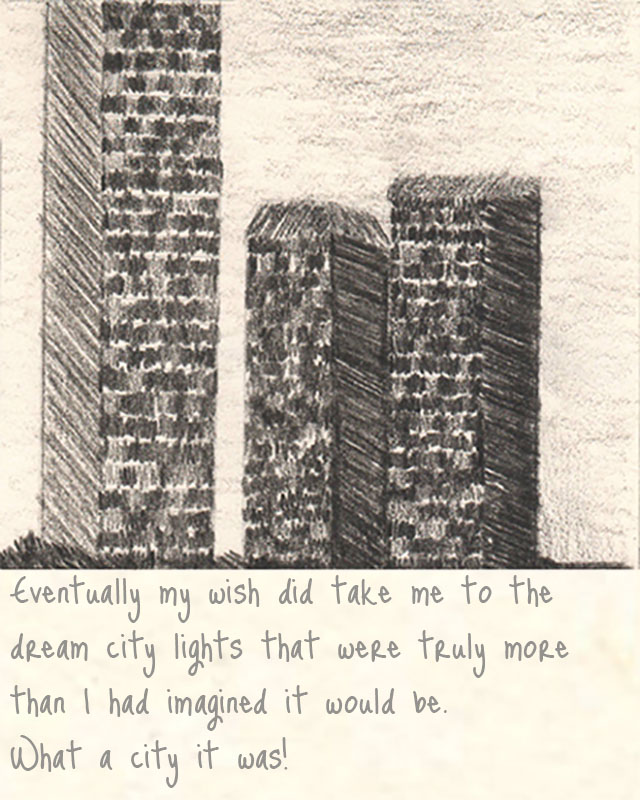 Eventually my wish did take me to the
dream city lights that were truly more
than I had imagined it would be.
What a city it was!